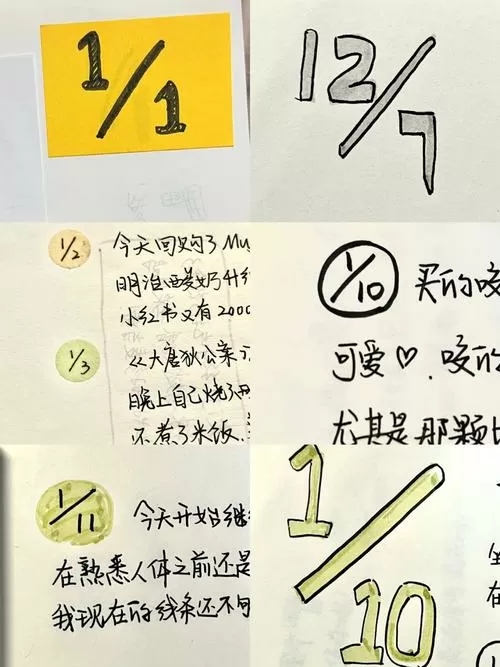 1/1
12/7
1/2
今天回购了Mu
明治酸奶升级
小红书又有2000
1/3
《大唐狄公案》
晚上自己烧
还煮了米饭.
1/10
买的咬
可爱♡.咬的
尤其是那颗
1/11
今天开始继
在熟悉人体之前还是
我现在的线条还不够
1/10